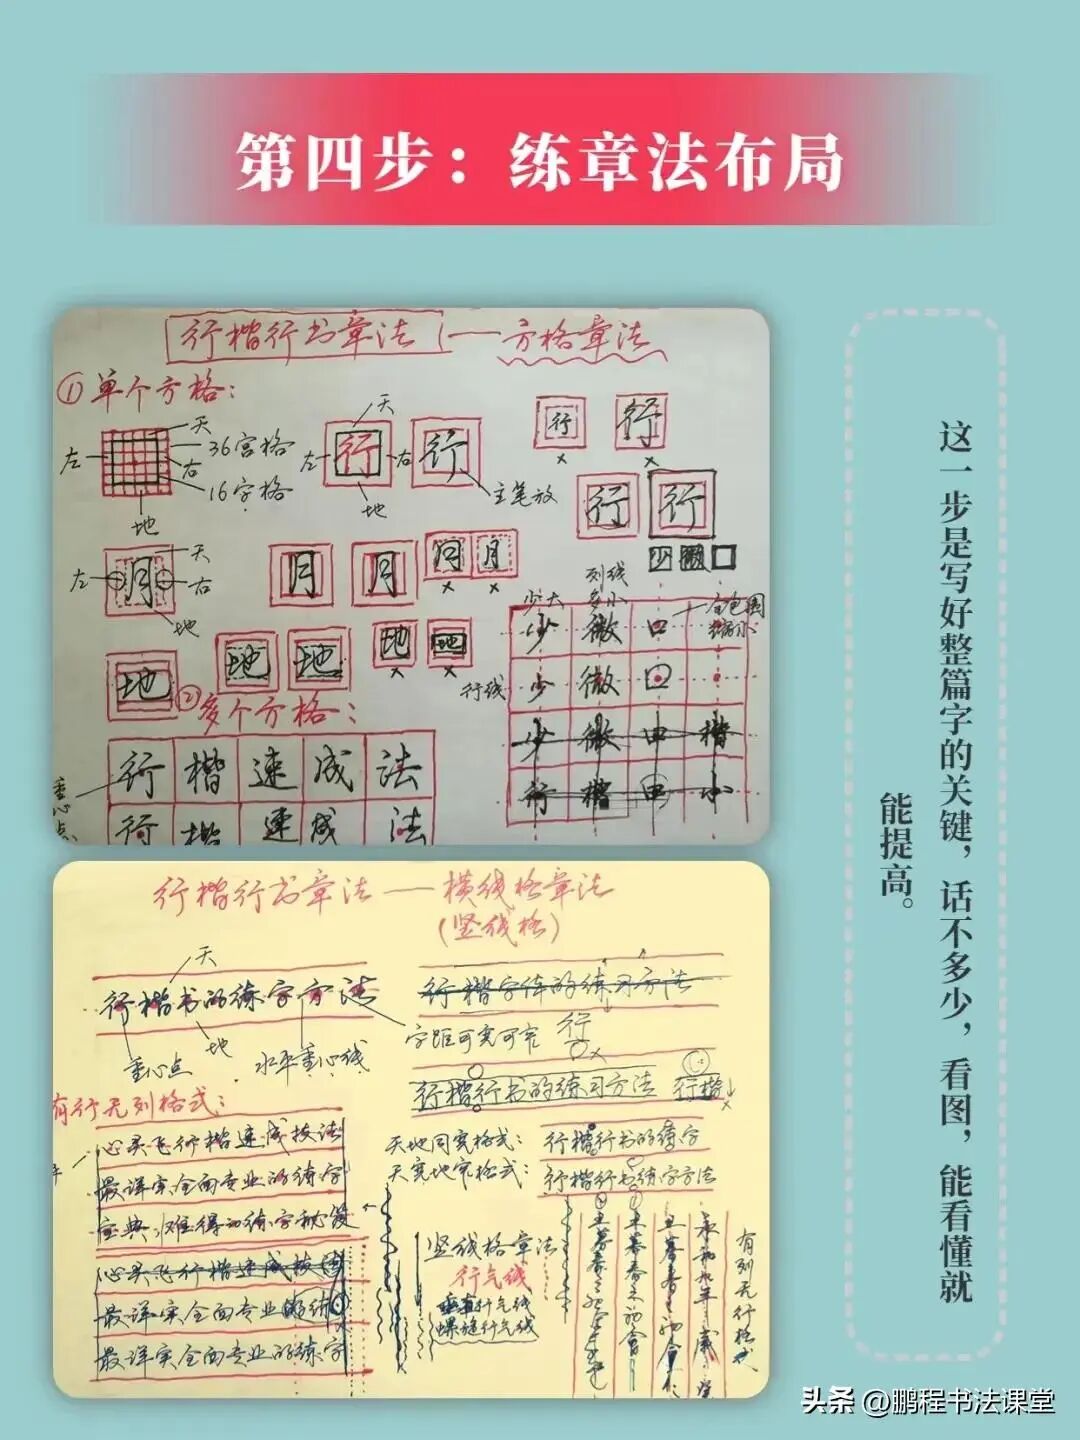 第四步：练章法布局
行楷行书章法——方格章法
①单个方格：
天
左
右
36宫格
16字格
地
天
左
行
右
地
行
主笔放
行
×
行
×
行
行
天
左
月
右
地
月
月
月
×
月
×
少
微
口
地
地
地
地
×
地
×
列线
少大
多小
全包围
缩小
行线
少 微 口
少 微 口
少 微 中 楷
行 楷 中 小
②多个方格：
行 楷 速 成 法
行 楷 速 成 法
重心点
行楷行书章法——横线格章法
（竖线格）
天
行楷书的练字方法
重心点
地
水平重心线
行楷字体的练习方法
字距可宽可窄
行
×
行楷行书的练习方法
行楷
×
有行无列格式：
心灵飞行楷速成技法
最详实全面专业的练字
宝典，难得的练字秘笈
心灵飞行楷速成技法
最详实全面专业的练字
最详实全面专业的练字
天地同宽格式：
行楷行书的练字
天宽地窄格式：
行楷行书练字方法
竖线格章法
行气线
垂直行气线
螺旋行气线
有列无行格式
这一步是写好整篇字的关键，话不多少，看图，能看懂就
能提高。
头条 @鹏程书法课堂